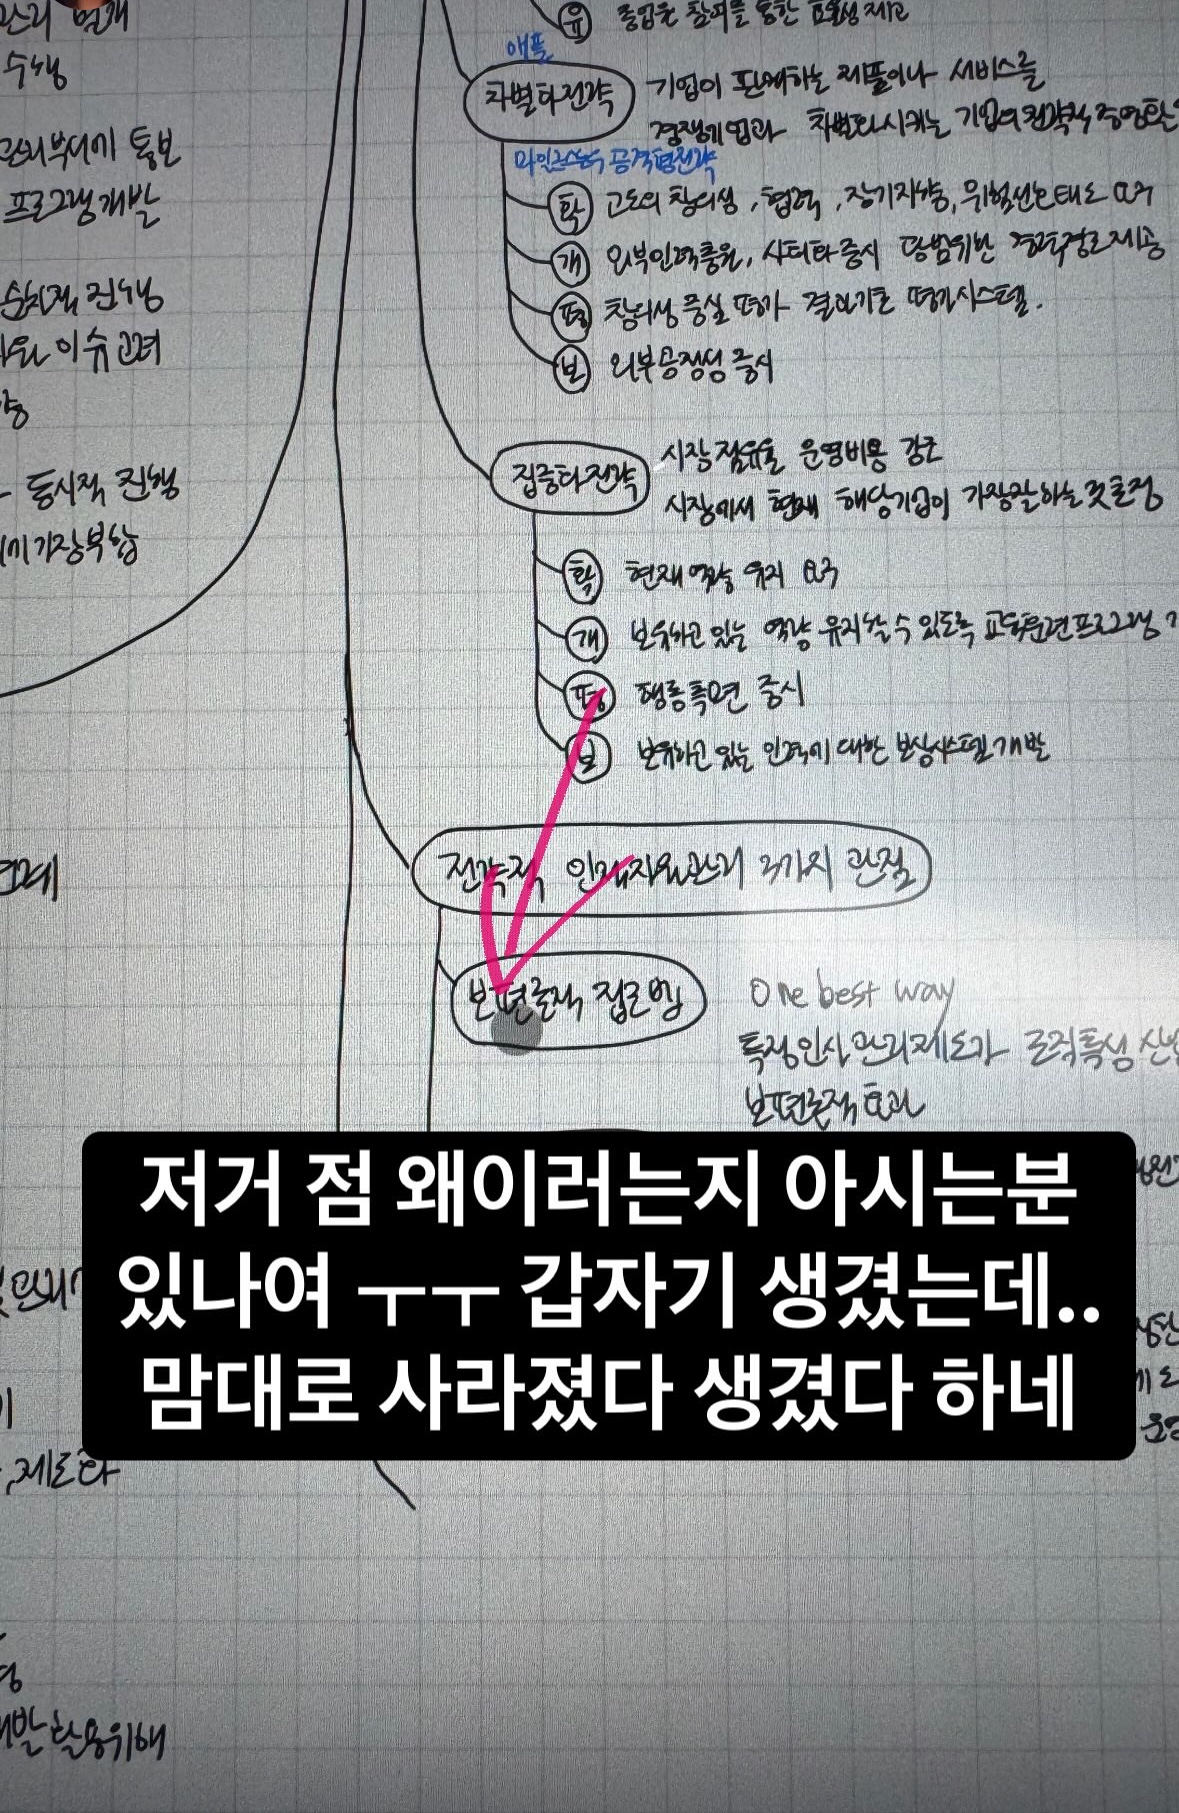 수행
통보
프로그램 개발
이슈 고려
동시적 진행
가장 부합
유
애플
차별화전략
기업이 판매하는 제품이나 서비스를
경쟁기업과 차별화시키는 기업의 전략적
공격형전략
확 고도의 창의성, 협력, 장기지향, 위험선호태도
개 외부인력충원, 광범위한 경력경로제공
평 창의성 중심 평가 결과기초 평가시스템.
보 외부공정성 중시
집중화전략
시장점유율 운영비용 강조
시장에서 현재 해당기업이 가장잘하는 것
확 현재 역량 유지
개 보유하고 있는 역량 유지할 수 있도록 교육훈련프로그램
평 행동측면 중시
보 보유하고 있는 인력에 대한 보상시스템 개발
전략적 인적자원관리 3가지 관점
보편론적 접근법
One best way
특정인사관리제도가 조직특성
보편론적효과
저거 점 왜이러는지 아시는분
있나여 ㅜㅜ 갑자기 생겼는데..
맘대로 사라졌다 생겼다 하네
제도화
활용위해